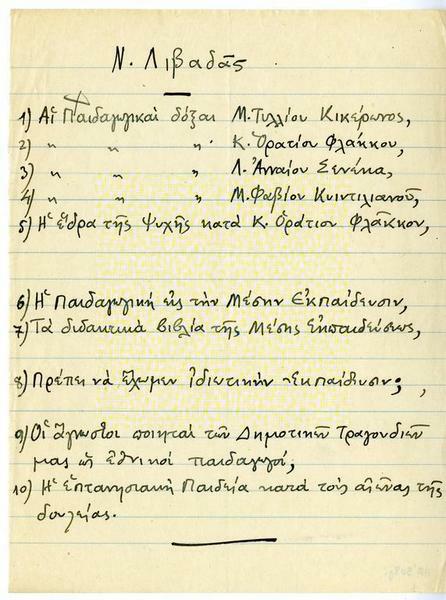 Ν. Λιβαδᾶς
1) Αἱ Παιδαγωγικαὶ δόξαι Μ. Τυλλίου Κικέρωνος,
2) " " " Κ. Ὁρατίου Φλάκκου,
3) " " " Λ. Ἀνναίου Σενέκα,
4) " " " Μ. Φαβίου Κυιντιλιανοῦ,
5) Ἡ ἕδρα τῆς ψυχῆς κατὰ Κ. Ὁράτιον Φλάκκον,
6) Ἡ Παιδαγωγικὴ εἰς τὴν Μέσην Ἐκπαίδευσιν,
7) Τὰ διδακτικὰ βιβλία τῆς Μέσης Ἐκπαιδεύσεως,
8) Πρέπει νὰ ἔχωμεν ἰδιωτικὴν ἐκπαίδευσιν; ,
9) Οἱ ἄγνωστοι ποιηταὶ τῶν Δημοτικῶν Τραγουδιῶν
μας ὡς ἐθνικοὶ παιδαγωγοί,
10) Ἡ Ἑπτανησιακὴ Παιδεία κατὰ τοὺς αἰῶνας τῆς
δουλείας.